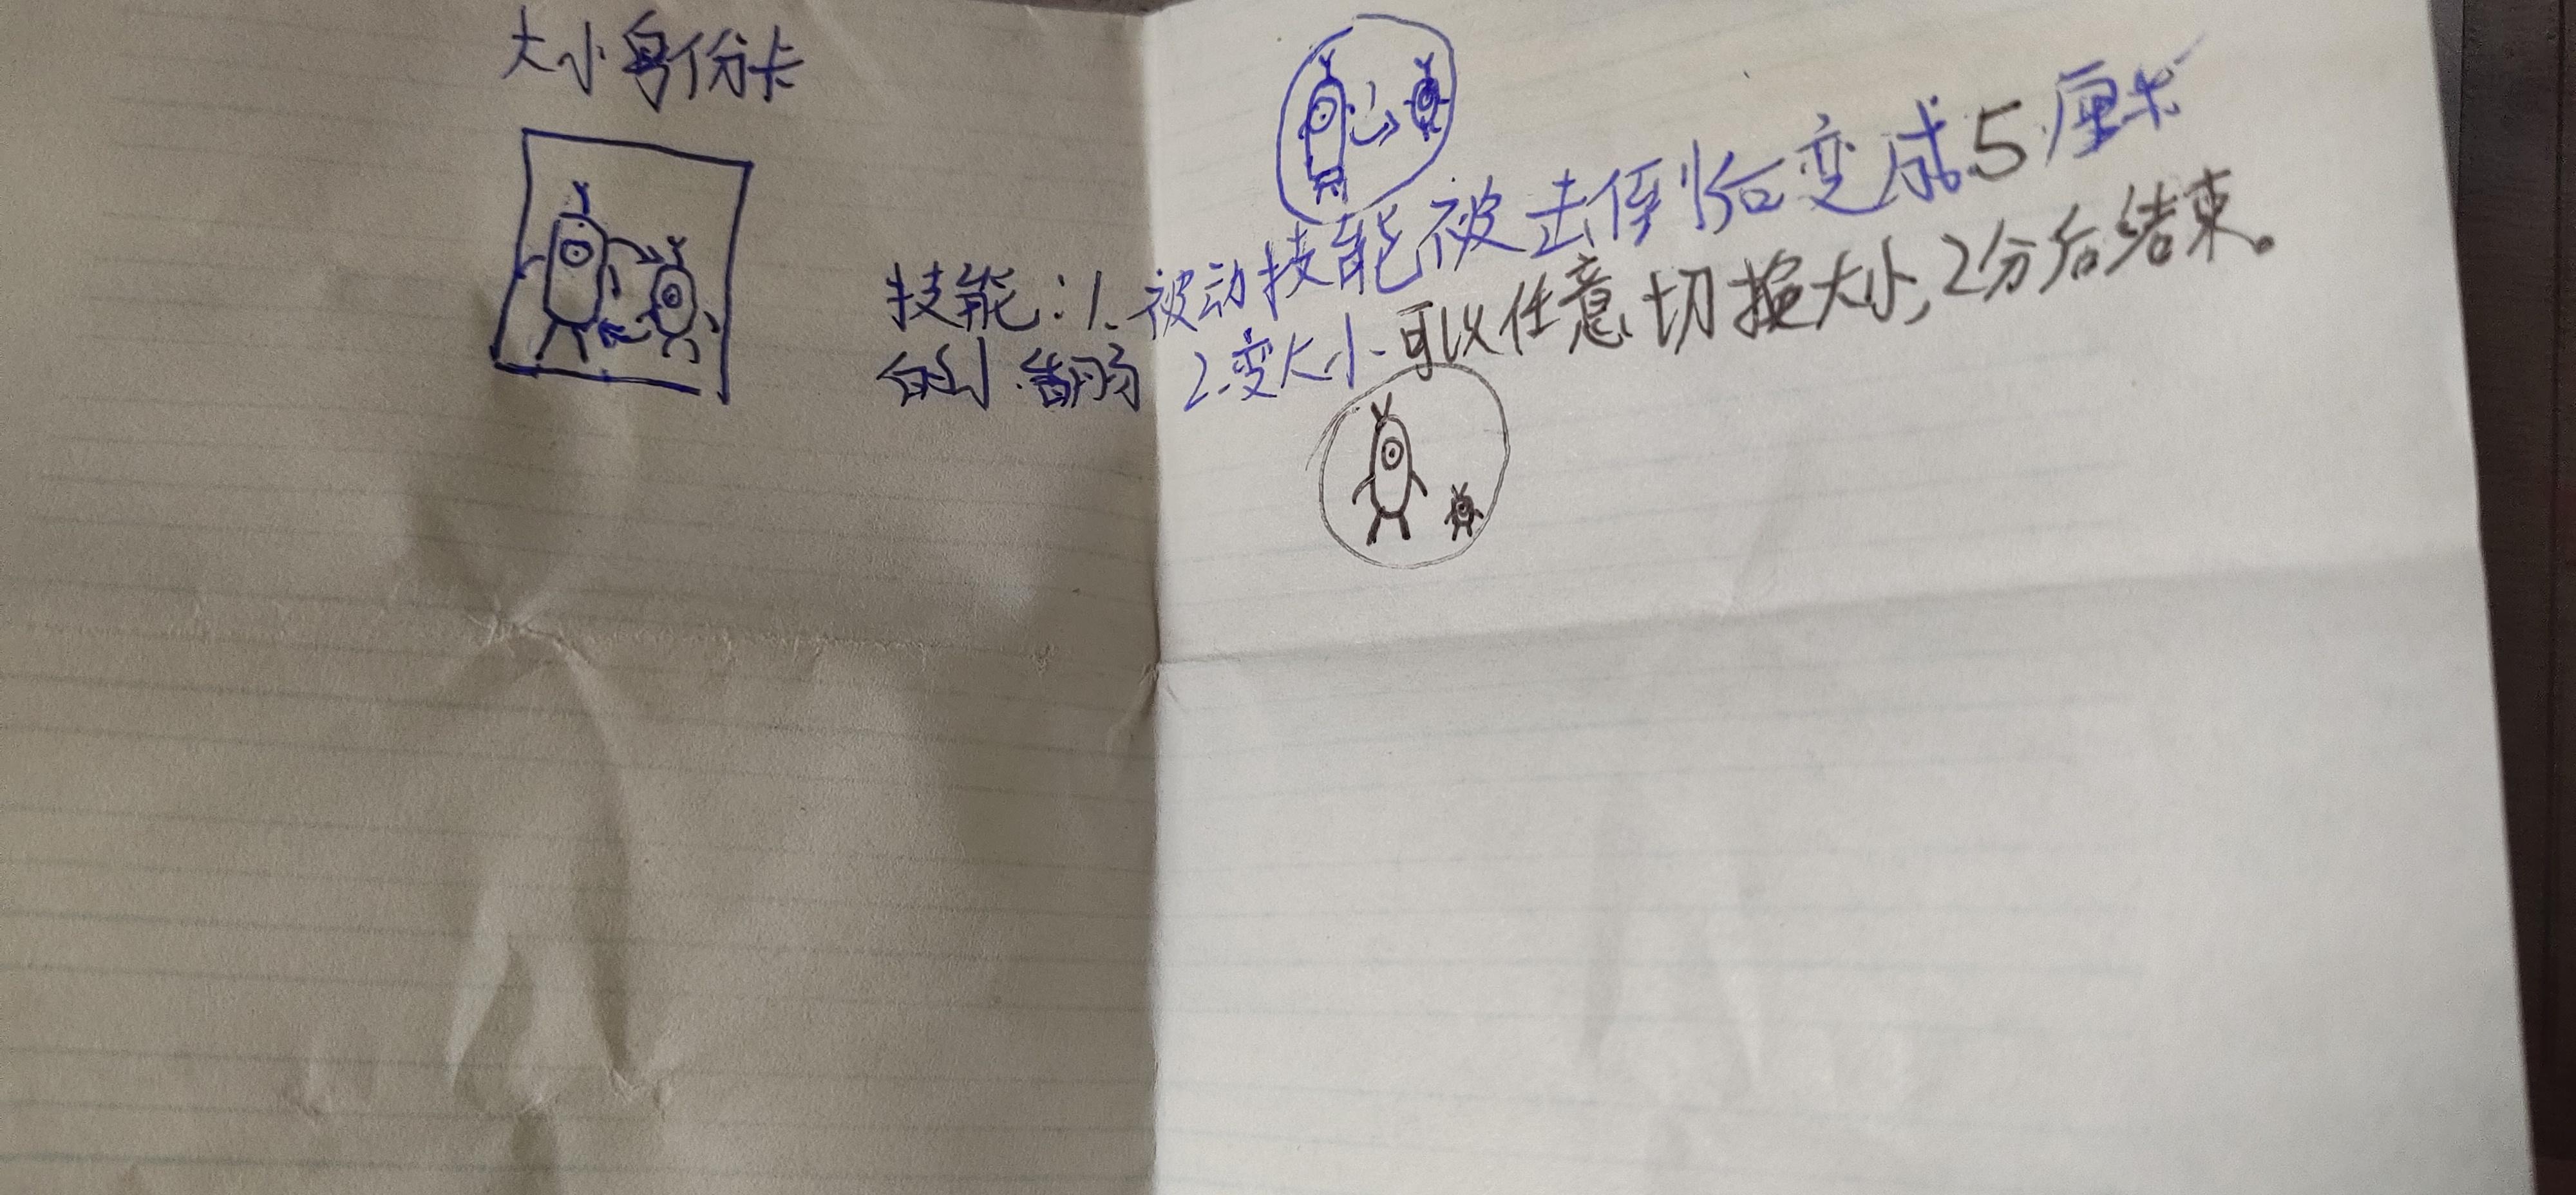 大小身份卡
技能:1.被动技能被击倒后变成5厘米
的小 2.变大小可以任意切换大小,2分后结束。